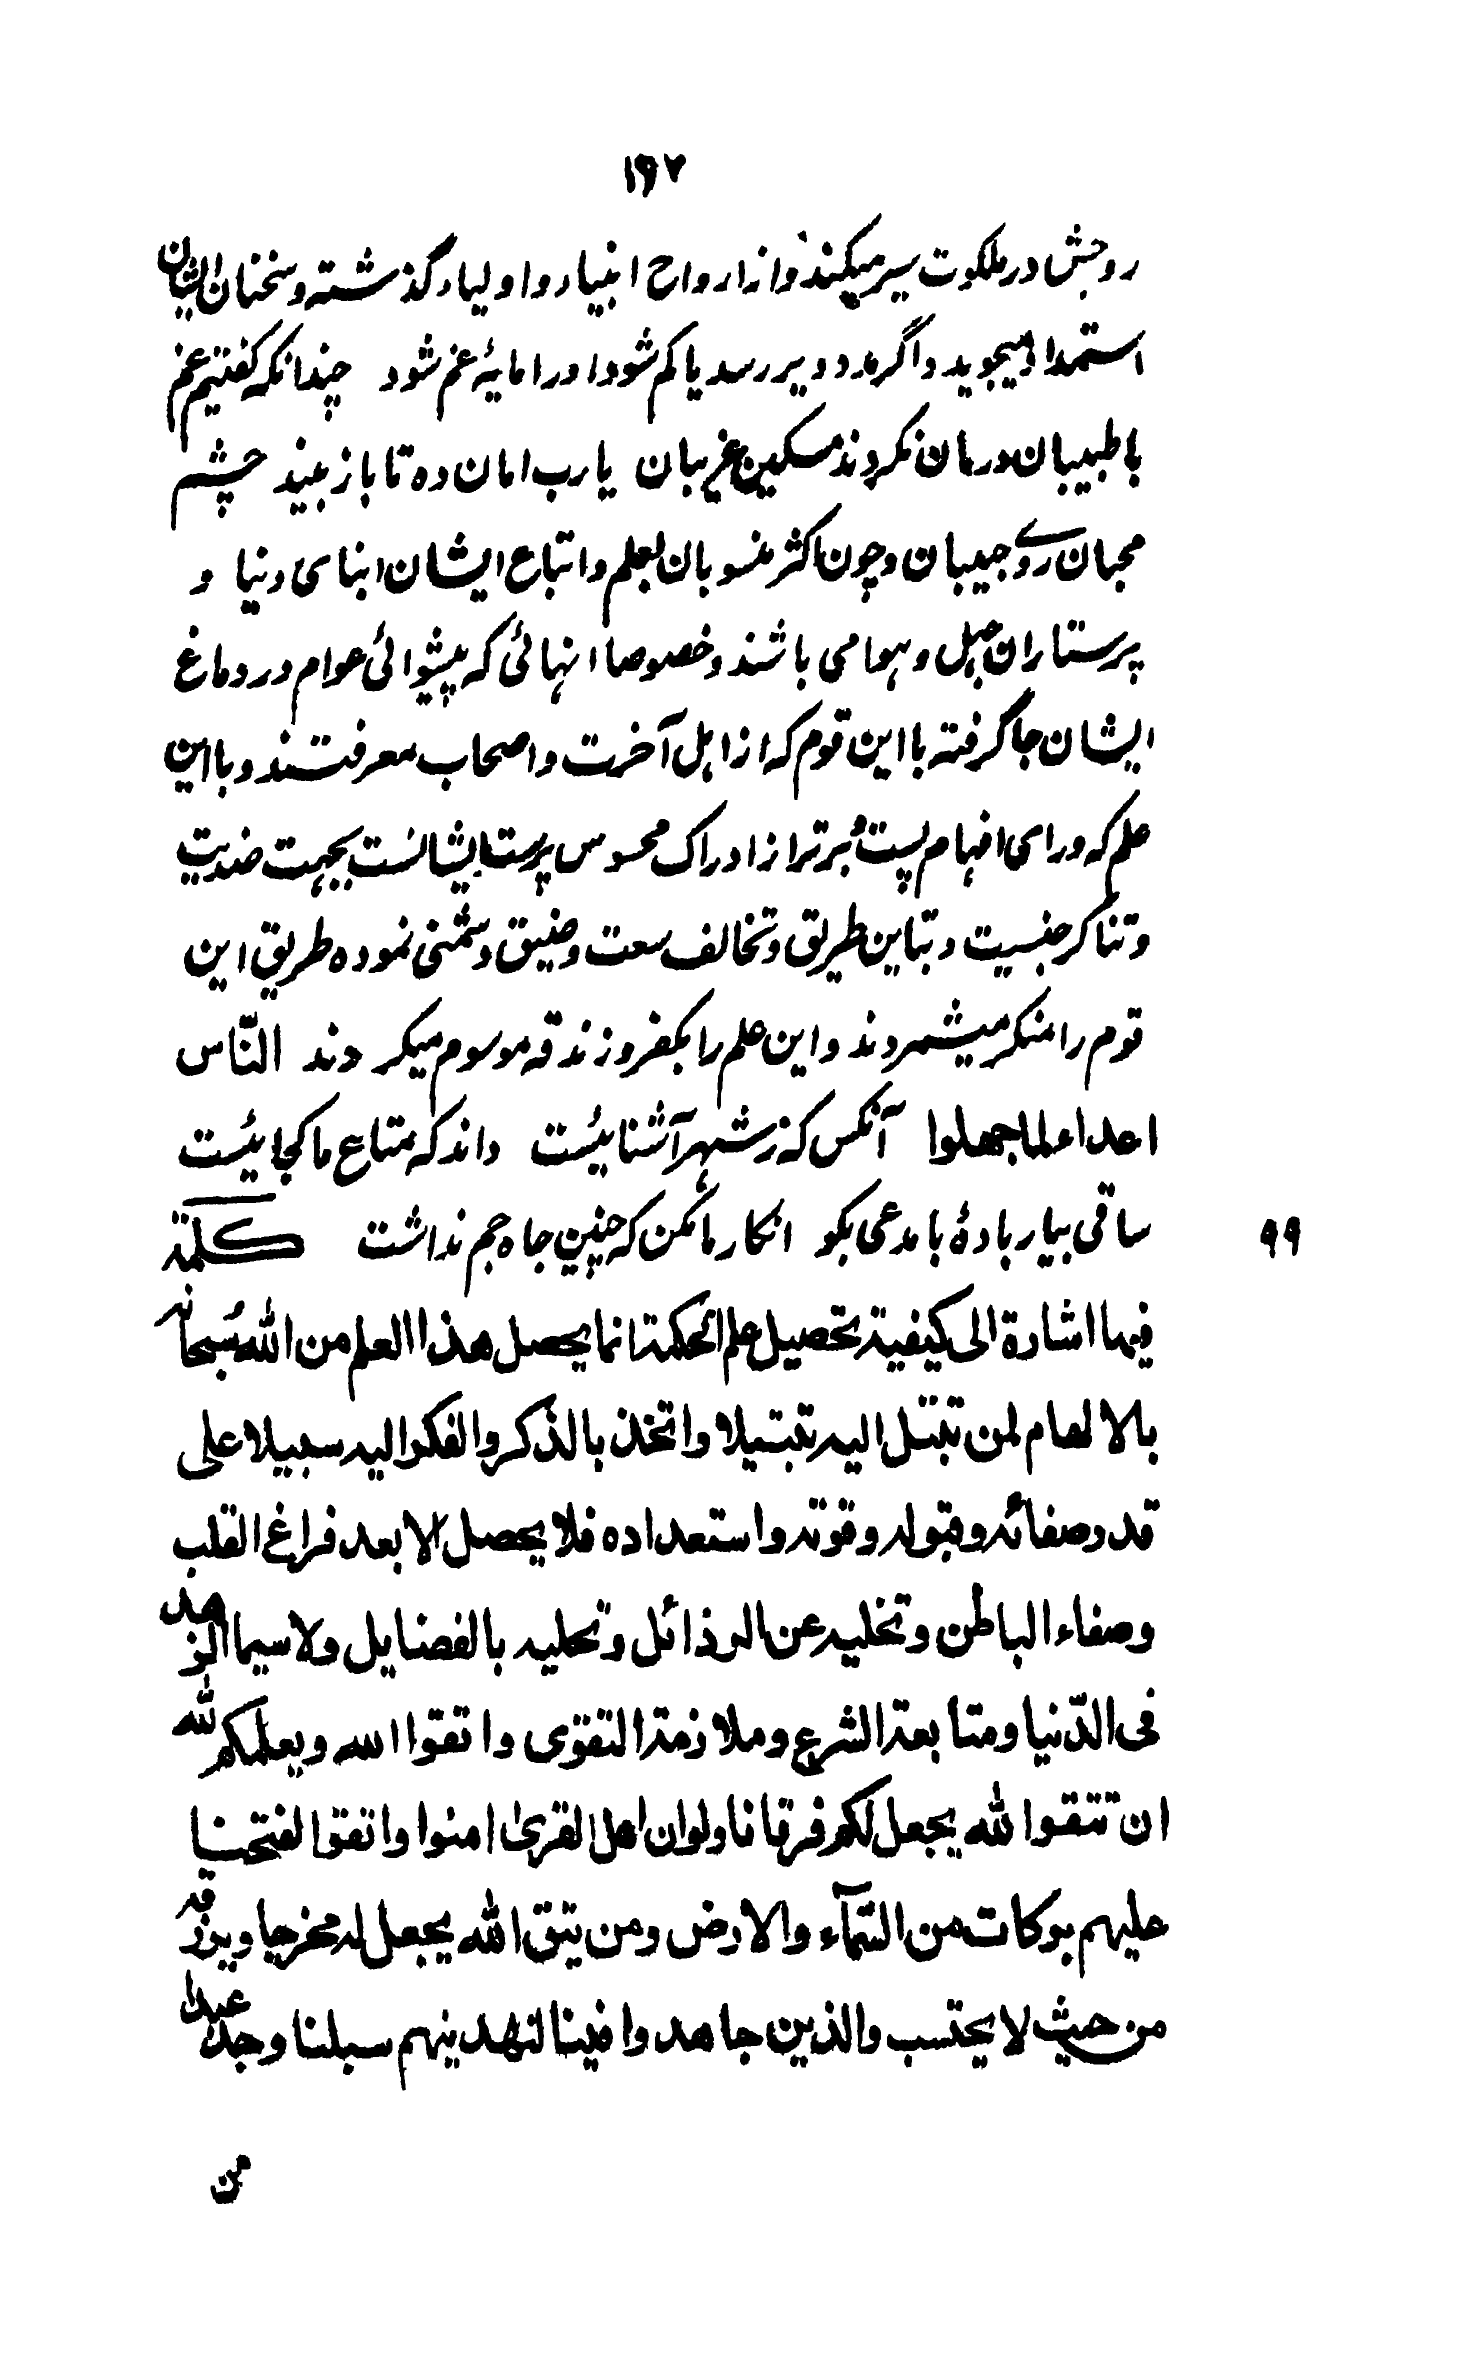 ۱۹۷
روحش در ملکوت سیر میکند و از ارواح انبیاء و اولیاء گذشته و سخنان ایشان
استمداد میجوید و اگر مدد دیر رسد یا کم شود او را مایهٔ غم شود چندانکه گفتیم غم
با طبیبان درمان نکردند مسکین غریبان یارب امان ده تا باز بیند چشم
محبان روی حبیبان و چون اکثر منسوبان بعلم و اتباع ایشان ابنای دنیا و
پرستاران جهل و هوا می باشند و خصوصا انهائی که پیشوائی عوام در دماغ
ایشان جا گرفته با این قوم که از اهل آخرت و اصحاب معرفتند و با این
علم که ورای افهام پست و برتر از ادراک محسوس پرست ایشانست بجهت ضدیت
و تناکر جنسیت و تباین طریق و تخالف سعت و ضیق دشمنی نموده طریق این
قوم را منکر میشمردند و این علم را بکفر و زندقه موسوم میکردند النّاس
اعداء لما جهلوا آنکس که ز شهر آشنایئست داند که متاع ما کجایئست
ساقی بیار بادهٔ با مدعی بگو انکار ما مکن که چنین جاه جم نداشت كلمة
۹۹
فیها اشارة الی کیفیة تحصیل علم الحکمة انما یحصل هذا العلم من الله سُبحانه
بالالهام لمن تبتل الیه تبتیلا واتخذ بالذکر والفکر الیه سبیلا علی
قدر صفائه وقبوله وقوته واستعداده فلا یحصل الا بعد فراغ القلب
وصفاء الباطن وتخلیه عن الرذائل وتحلیه بالفضایل ولاسیما الزهد
فی الدّنیا ومتابعة الشرع وملازمة التقوی واتقوا الله ویعلمکم الله
ان تتقوا الله یجعل لکم فرقانا ولو ان اهل القریٰ امنوا واتقوا لفتحنا
علیهم برکات من السّمآء والارض ومن یتق الله یجعل له مخرجا ویرزقه
من حیث لا یحتسب والذین جاهدوا فینا لنهدینهم سبلنا وجد عبدا
من